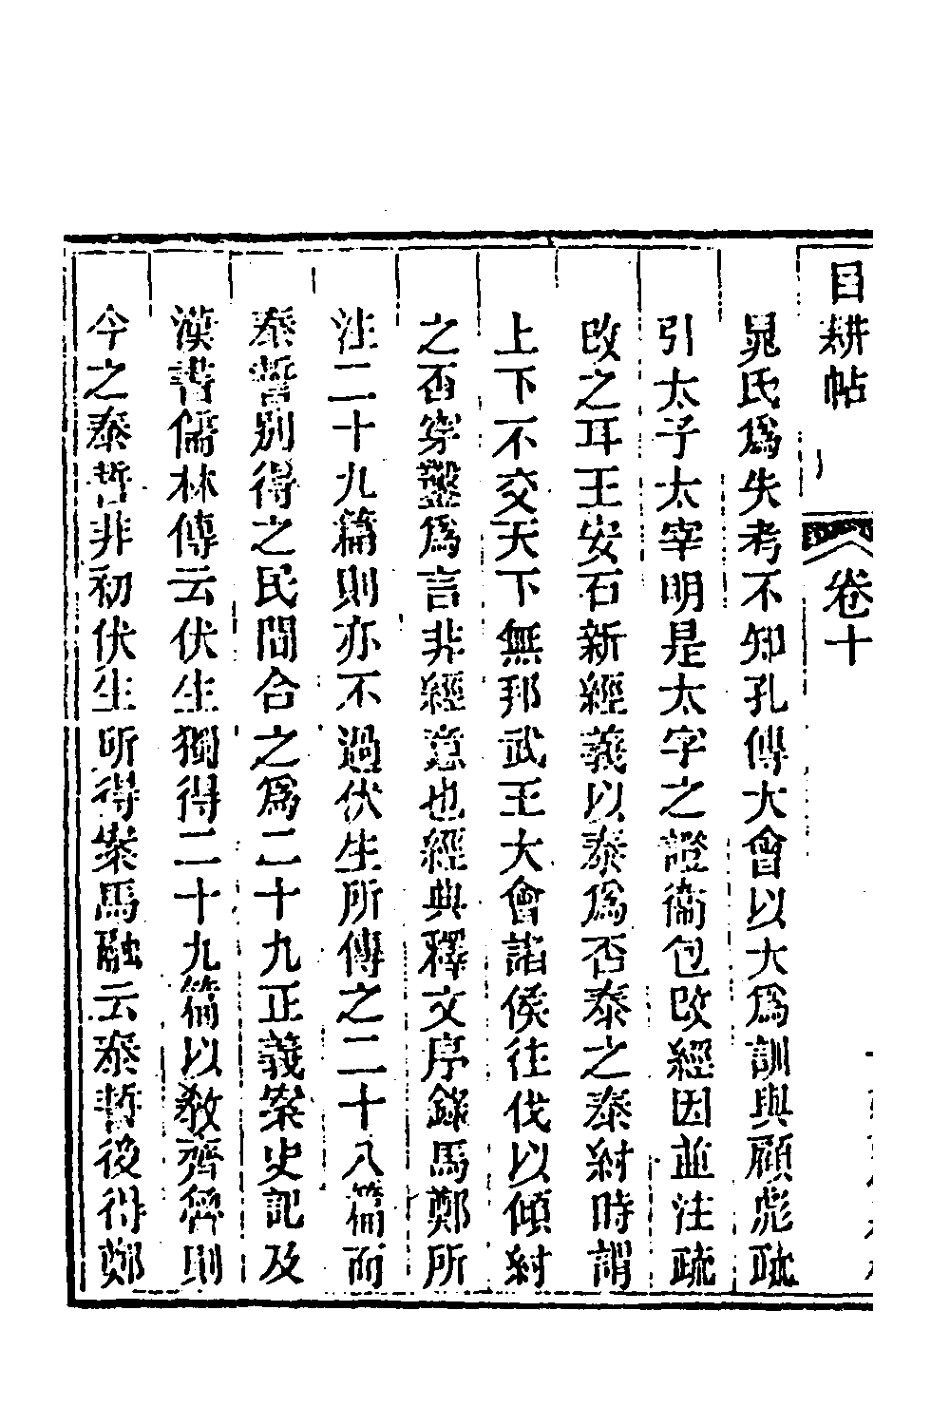 目耕帖 卷十
晁氏爲失考不知孔傳大會以大爲訓與顧彪
引太子太宰明是太字之證衞包改經因並注疏
改之耳王安石新經義以泰爲否泰之泰紂時謂
上下不交天下無邦武王大會諸侯往伐以傾紂
之否穿鑿爲言非經意也經典釋文序錄馬鄭所
注二十九篇則亦不過伏生所傳之二十八篇而
泰誓別得之民間合之爲二十九正義案史記及
漢書儒林傳云伏生獨得二十九篇以敎齊魯則
今之泰誓非初伏生所得案馬融云泰誓後得鄭